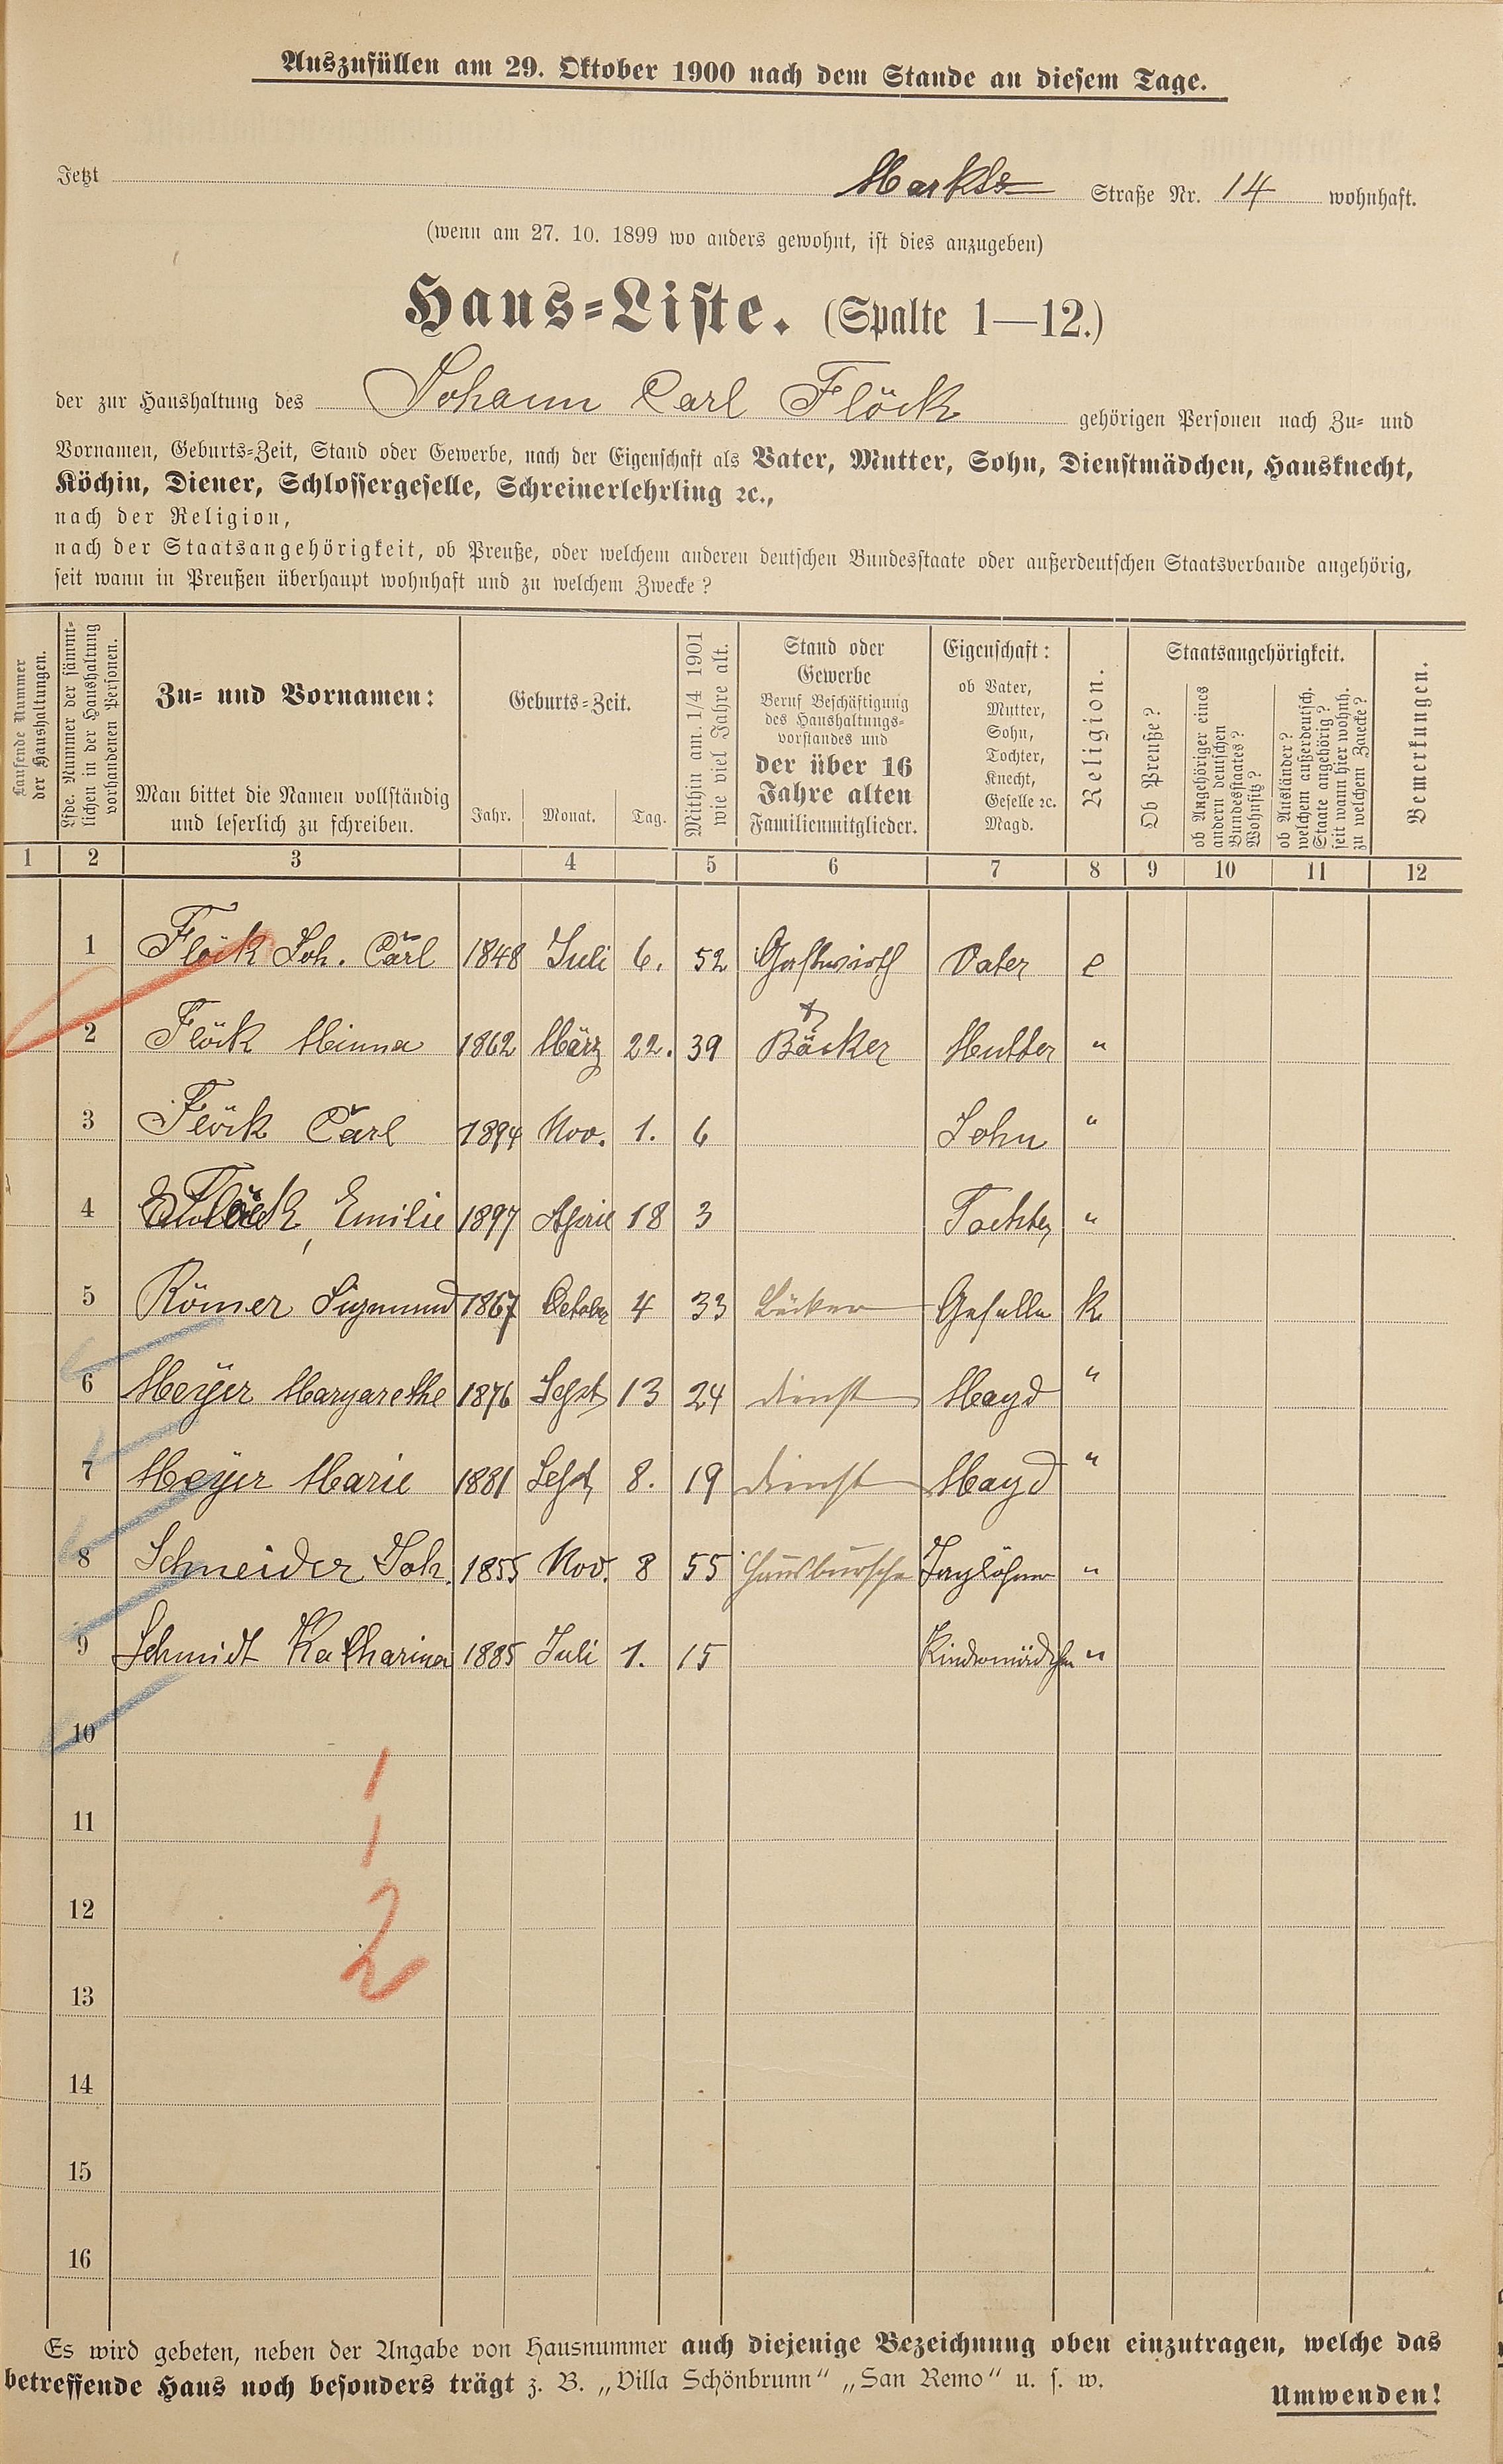 Auszufüllen am 29. Oktober 1900 nach dem Stande an diesem Tage.
Jetzt Marktstr Straße Nr. 14 wohnhaft.
(wenn am 27. 10. 1899 wo anders gewohnt, ist dies anzugeben)
Haus-Liste. (Spalte 1—12.)
der zur Haushaltung des Johann Carl Flöck gehörigen Personen nach Zu- und
Vornamen, Geburts-Zeit, Stand oder Gewerbe, nach der Eigenschaft als Vater, Mutter, Sohn, Dienstmädchen, Hausknecht,
Köchin, Diener, Schlossergeselle, Schreinerlehrling ꝛc.,
nach der Religion,
nach der Staatsangehörigkeit, ob Preuße, oder welchem anderen deutschen Bundesstaate oder außerdeutschen Staatsverbande angehörig,
seit wann in Preußen überhaupt wohnhaft und zu welchem Zwecke?
Laufende Nummer
der Haushaltungen.
Lfde. Nummer der sämmt-
lichen in der Haushaltung
vorhandenen Personen.
Zu- und Vornamen:
Man bittet die Namen vollständig
und leserlich zu schreiben.
Geburts-Zeit.
Jahr. Monat. Tag.
Mithin am 1/4 1901
wie viel Jahre alt.
Stand oder
Gewerbe
Beruf Beschäftigung
des Haushaltungs-
vorstandes und
der über 16
Jahre alten
Familienmitglieder.
Eigenschaft:
ob Vater,
Mutter,
Sohn,
Tochter,
Knecht,
Geselle ꝛc.
Magd.
Religion.
Staatsangehörigkeit.
Ob Preuße?
ob Angehöriger eines
andern deutschen
Bundesstaates?
Wohnsitz?
ob Ausländer?
welchem außerdeutsch.
Staate angehörig?
seit wann hier wohnh.
zu welchem Zwecke?
Bemerkungen.
1 2 3 4 5 6 7 8 9 10 11 12
1 Flöck Joh. Carl 1848 Juli 6. 52 Gastwirth Vater e
2 Flöck Minna 1862 März 22. 39 Bäcker Mutter "
3 Flöck Carl 1894 Nov. 1. 6 Sohn "
4 Flöck, Emilie 1897 April 18 3 Tochter "
5 Römer Sigmund 1867 October 4 33 Bäcker Geselle k
6 Meÿer Margarethe 1876 Sept 13 24 dienst Magd "
7 Meÿer Marie 1881 Sept 8. 19 dienst Magd "
8 Schneider Joh. 1855 Nov. 8 55 Hausbursche Taglöhner "
9 Schmidt Katharina 1885 Juli 1. 15 Kindermädchen "
10
1
11
1
12
2
13
14
15
16
Es wird gebeten, neben der Angabe von Hausnummer auch diejenige Bezeichnung oben einzutragen, welche das
betreffende Haus noch besonders trägt z. B. „Villa Schönbrunn" „San Remo" u. s. w.
Umwenden!